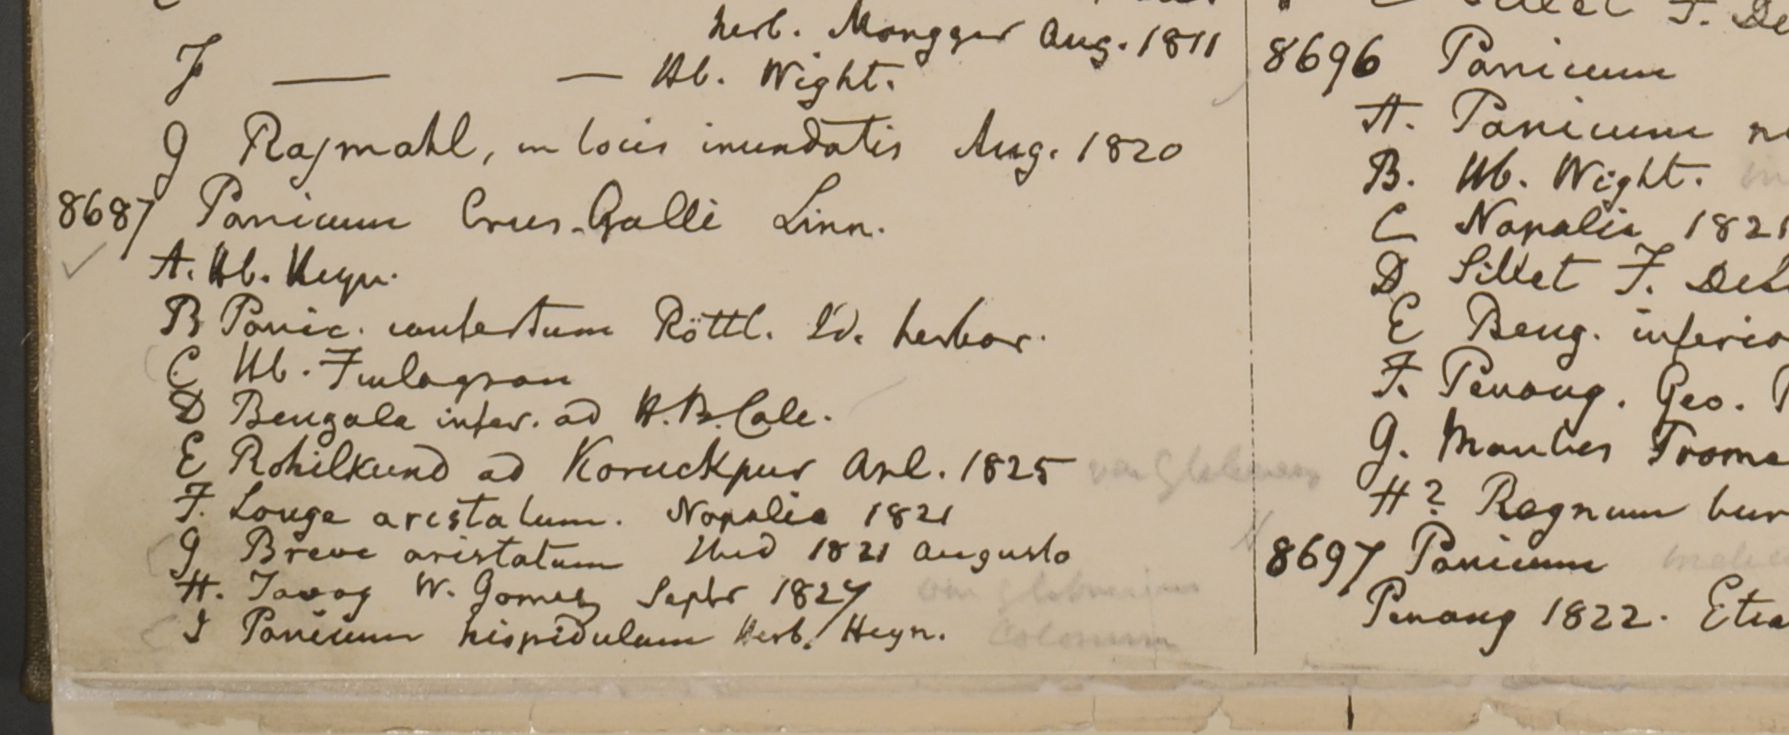 herb. Mongyer Aug. 1811
F — — Hb. Wight.
G Rajmahl, in locis inundatis Aug. 1820
8687 Panicum Crus-Galli Linn.
A. Hb. Heyn.
B Panic. confertum Röttl. herbar.
C Hb. Finlayson
D Bengala infer. ad H.B. Calc.
E Rohilkund ad Koruckpur Apl. 1825
F. Longe aristatum. Napalia 1821
G Breve aristatum Ibid 1821 Augusto
H. Tavoy W. Gomez Septr 1827
I Panicum hispidulum Herb. Heyn. Colonum
8696 Panicum
A. Panicum
B. Hb. Wight.
C Napalia 1821
D Sillet F. DeS
E Beng. inferio
F. Penang. Geo. P
G. Montes Prome
H? Regnum bur
8697 Panicum
Penang 1822. Etia